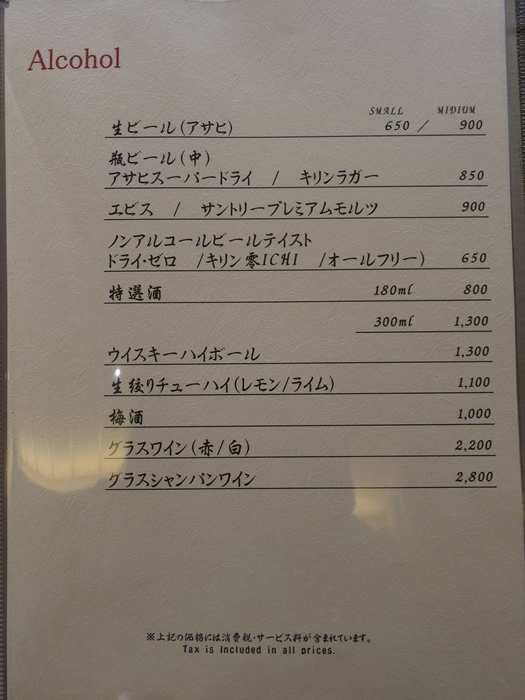 Alcohol
SMALL MIDIUM
生ビール(アサヒ) 650 / 900
瓶ビール(中)
アサヒスーパードライ / キリンラガー 850
エビス / サントリープレミアムモルツ 900
ノンアルコールビールテイスト
ドライ・ゼロ /キリン零ICHI /オールフリー) 650
特選酒 180ml 800
300ml 1,300
ウイスキーハイボール 1,300
生絞りチューハイ(レモン/ライム) 1,100
梅酒 1,000
グラスワイン(赤/白) 2,200
グラスシャンパンワイン 2,800
※上記の価格には消費税・サービス料が含まれています。
Tax is Included in all prices.